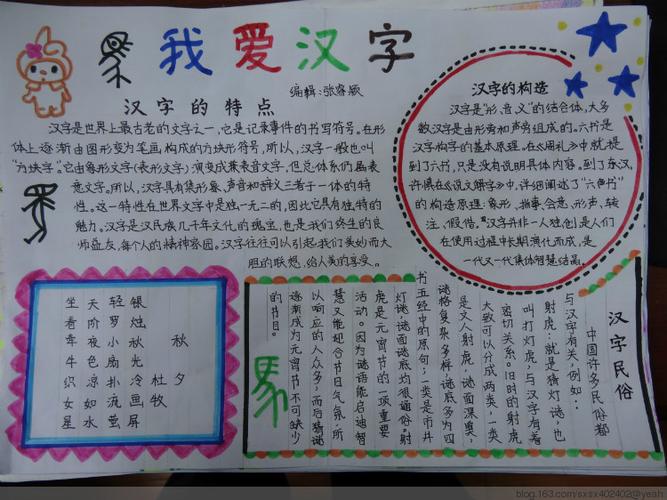 我爱汉字
编辑:张睿璇
汉字的特点
汉字是世界上最古老的文字之一,它是记录事件的书写符号。在形
体上逐渐由图形变为笔画构成的方块形符号。所以,汉字一般也叫
“方块字”。它由象形文字(表形文字)演变成兼表音文字,但总体系仍属表
意文字。所以,汉字具有集形象、声音和辞义三者于一体的特
性。这一特性在世界文字中是独一无二的,因此它具有独特的
魅力。汉字是汉民族几千年文化的瑰宝,也是我们终生的良
师益友,每个人的精神家园。汉字往往可以引起我们美妙而大
胆的联想,给人美的享受。
汉字的构造
汉字是“形、音、义”的结合体,大多
数汉字是由形旁和声旁组成的。六书是
汉字构字的基本原理,在《周礼》中就提
到了六书,只是没有说明具体内容。到了东汉,
许慎在《说文解字》中,详细阐述了“六书”
的构造原理:象形、指事、会意、形声、转
注、假借。汉字并非一人独创,是人们
在使用过程中长期演化而成,是
一代又一代集体智慧结晶。
秋夕
杜牧
银烛秋光冷画屏
轻罗小扇扑流萤
天阶夜色凉如水
坐看牵牛织女星
汉字民俗
中国许多民俗都
与汉字有关,例如:
射虎:就是猜灯谜,也
叫打灯虎,与汉字有着
密切关系。旧时的射虎
大致可以分成两类,一类
是文人射虎,谜面深奥,
谜格复杂多样,谜底多为四
书五经中的原句;一类是市井
灯谜,谜面谜底均很通俗。射
虎是元宵节的一项重要
活动。因为谜语能启迪智
慧又能迎合节日气氛,所
以响应的人众多,而后猜谜
逐渐成为元宵节不可缺少
的节目。
blog.163.com/sxsx402402@yeah